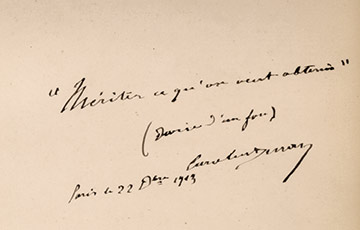 "Mériter ce qu'on veut obtenir"
(Devise d'un fou)
Carolus Duran
Paris le 22 1903